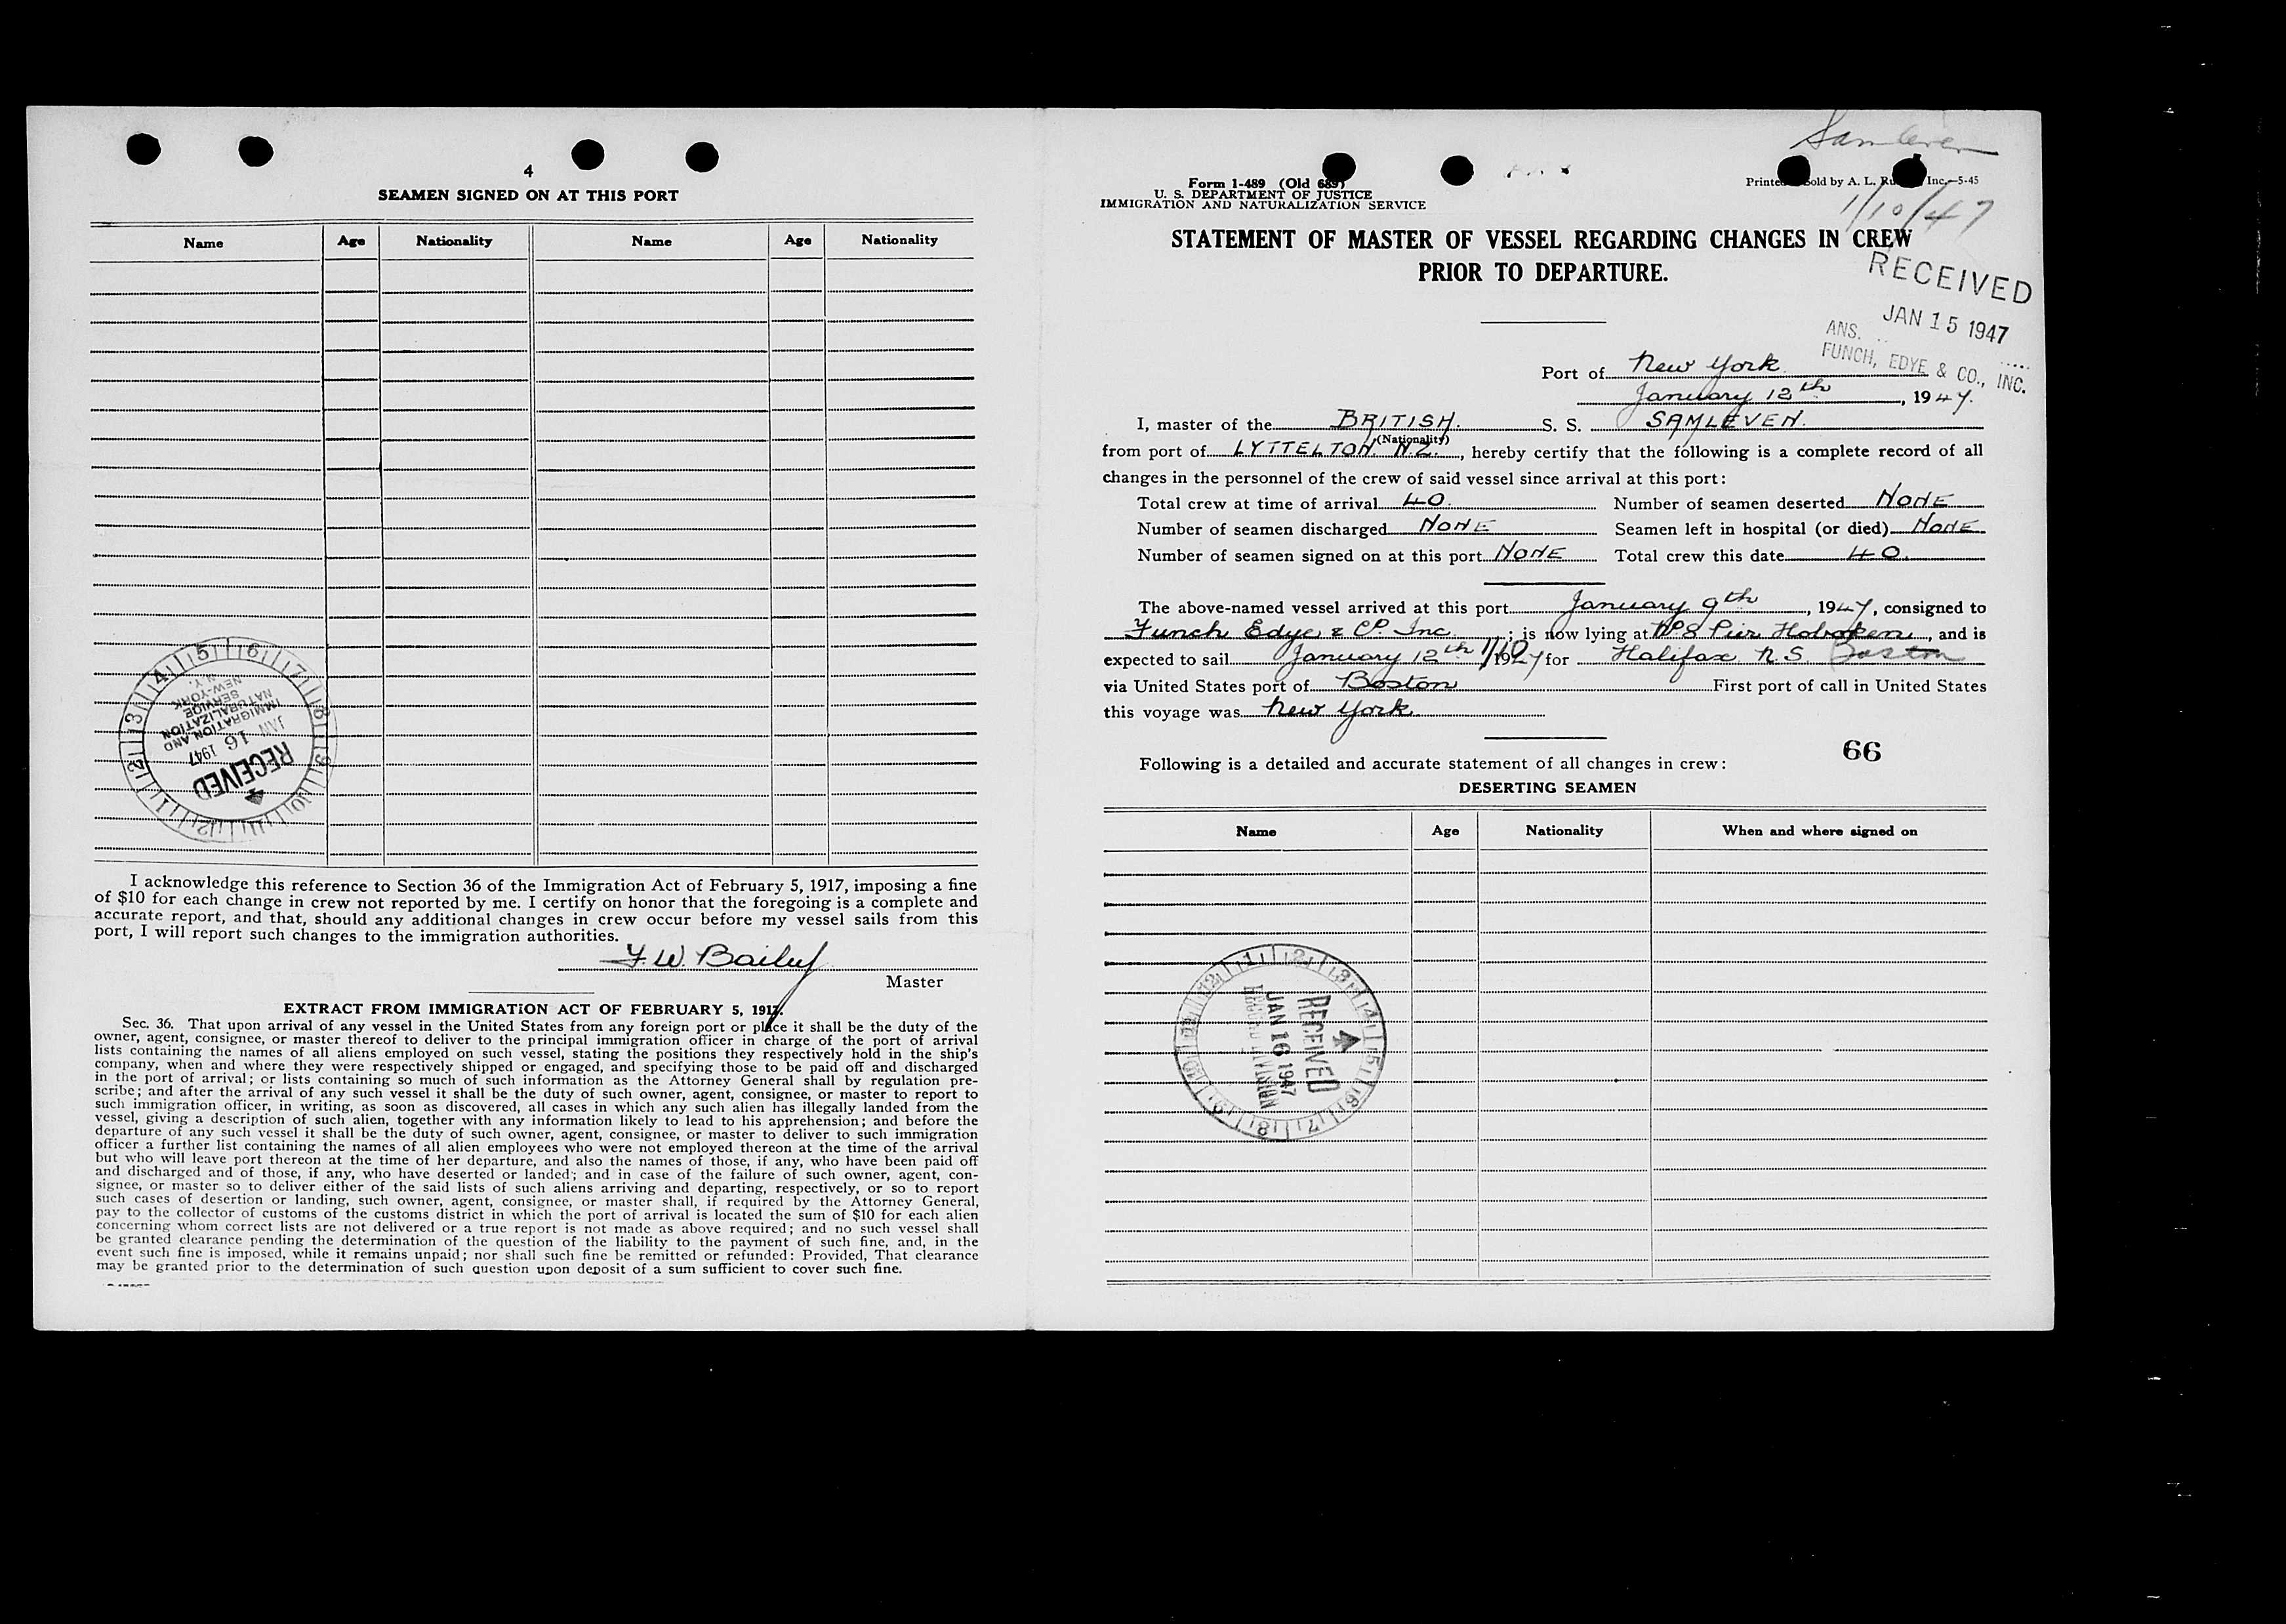 4
SEAMEN SIGNED ON AT THIS PORT
Name Age Nationality Name Age Nationality
RECEIVED
JAN 16 1947
IMMIGRATION AND
NATURALIZATION
SERVICE
NEW-YORK
N.Y.
I acknowledge this reference to Section 36 of the Immigration Act of February 5, 1917, imposing a fine
of $10 for each change in crew not reported by me. I certify on honor that the foregoing is a complete and
accurate report, and that, should any additional changes in crew occur before my vessel sails from this
port, I will report such changes to the immigration authorities.
F. W. Bailey
Master
EXTRACT FROM IMMIGRATION ACT OF FEBRUARY 5, 1917.
Sec. 36. That upon arrival of any vessel in the United States from any foreign port or place it shall be the duty of the
owner, agent, consignee, or master thereof to deliver to the principal immigration officer in charge of the port of arrival
lists containing the names of all aliens employed on such vessel, stating the positions they respectively hold in the ship's
company, when and where they were respectively shipped or engaged, and specifying those to be paid off and discharged
in the port of arrival; or lists containing so much of such information as the Attorney General shall by regulation pre-
scribe; and after the arrival of any such vessel it shall be the duty of such owner, agent, consignee, or master to report to
such immigration officer, in writing, as soon as discovered, all cases in which any such alien has illegally landed from the
vessel, giving a description of such alien, together with any information likely to lead to his apprehension; and before the
departure of any such vessel it shall be the duty of such owner, agent, consignee, or master to deliver to such immigration
officer a further list containing the names of all alien employees who were not employed thereon at the time of the arrival
but who will leave port thereon at the time of her departure, and also the names of those, if any, who have been paid off
and discharged and of those, if any, who have deserted or landed; and in case of the failure of such owner, agent, con-
signee, or master so to deliver either of the said lists of such aliens arriving and departing, respectively, or so to report
such cases of desertion or landing, such owner, agent, consignee, or master shall, if required by the Attorney General,
pay to the collector of customs of the customs district in which the port of arrival is located the sum of $10 for each alien
concerning whom correct lists are not delivered or a true report is not made as above required; and no such vessel shall
be granted clearance pending the determination of the question of the liability to the payment of such fine, and, in the
event such fine is imposed, while it remains unpaid; nor shall such fine be remitted or refunded: Provided, That clearance
may be granted prior to the determination of such question upon deposit of a sum sufficient to cover such fine.
Samleven
Form I-489 (Old 689)
U. S. DEPARTMENT OF JUSTICE
IMMIGRATION AND NATURALIZATION SERVICE
Printed sold by A. L. Inc.-5-45
1/10/47
STATEMENT OF MASTER OF VESSEL REGARDING CHANGES IN CREW
PRIOR TO DEPARTURE.
RECEIVED
JAN 15 1947
ANS.
FUNCH, EDYE & CO., INC.
Port of New York
January 12th, 1947.
I, master of the BRITISH. S. S. SAMLEVEN.
(Nationality)
from port of LYTTELTON. N.Z., hereby certify that the following is a complete record of all
changes in the personnel of the crew of said vessel since arrival at this port:
Total crew at time of arrival 40. Number of seamen deserted NONE
Number of seamen discharged NONE Seamen left in hospital (or died) NONE
Number of seamen signed on at this port NONE Total crew this date 40.
The above-named vessel arrived at this port January 9th, 1947, consigned to
Funch Edye & Co. Inc.; is now lying at No 8 Pier Hoboken, and is
expected to sail January 12th 1/10 1947 for Halifax N.S. Boston
via United States port of Boston First port of call in United States
this voyage was New York
66
Following is a detailed and accurate statement of all changes in crew:
DESERTING SEAMEN
Name Age Nationality When and where signed on
RECEIVED
JAN 16 1947